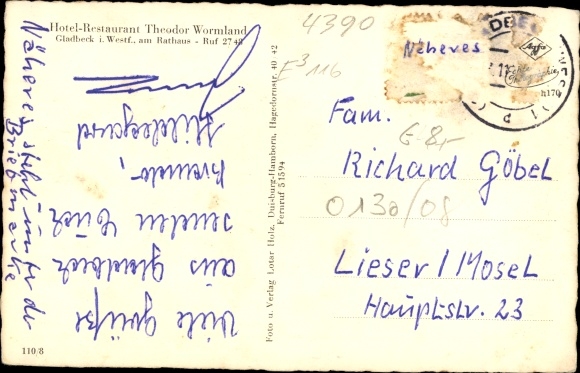 Hotel-Restaurant Theodor Wormland
Gladbeck i. Westf., am Rathaus - Ruf 27 48
Viele Grüße
aus Gladbeck
senden Euch
Hildegard
Näheres steht unter der
Briefmarke
110/8
Foto u. Verlag Lothar Holz, Duisburg-Hamborn, Hagedornstr. 40 42
Fernruf 51594
4390
E³ 116
Näheres
Agfa
h170
Fam.
6.8,-
Richard Göbel
0130/08
Lieser / Mosel
Hauptstr. 23